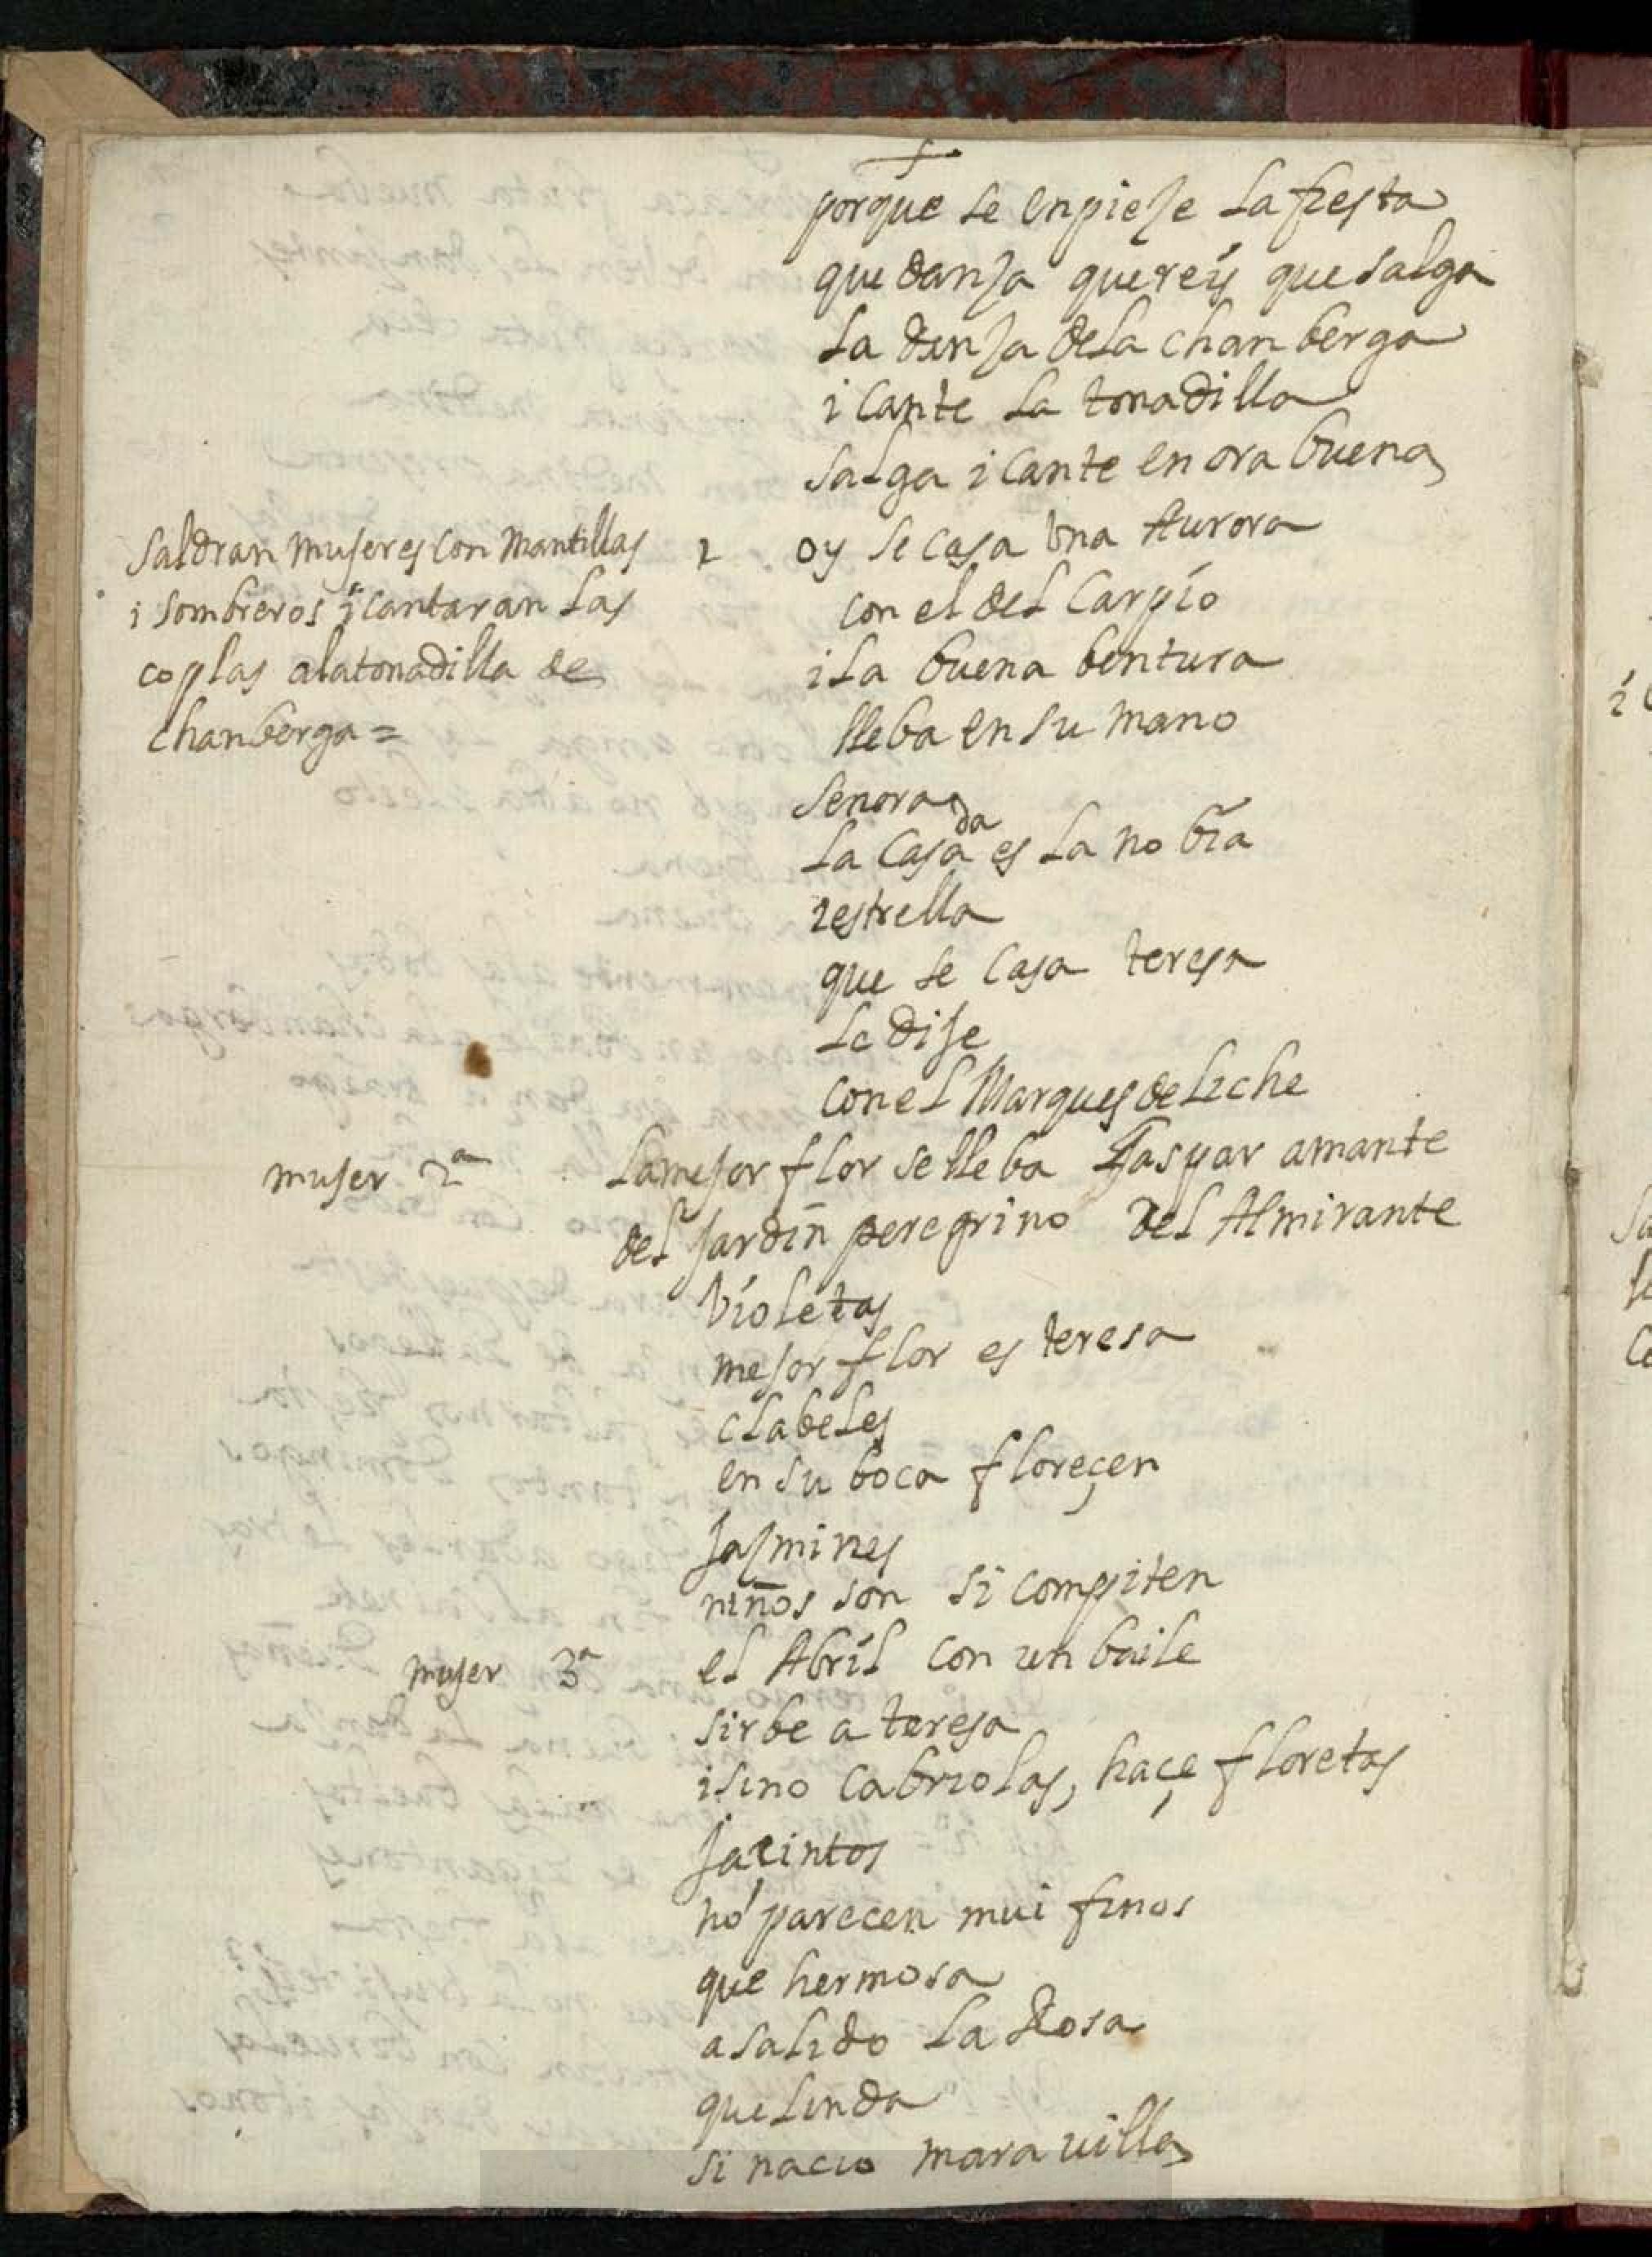 porque se enpieze la fiesta
que danza quereis que salga
la danza dela chanberga
i cante la tonadilla
salga i cante en ora buena
saldran mujeres con mantillas
i sombreros i cantaran las
coplas alatonadilla de
chanberga =
1 oy se casa una Aurora
con el del Carpio
i la buena bentura
lleba en su mano
senora
la casada es la nobia
estrella
que se casa teresa
le dije
con el Marques de liche
mujer 2ª la mejor flor se lleba Gaspar amante
del jardin peregrino del Almirante
Violetas
mejor flor es teresa
clabeles
en su boca floreçen
jazmines
niños son si compiten
mujer 3ª el Abril con un baile
sirbe a teresa
i sino cabriolas, haçe floretas
jacintos
nó parecen mui finos
que hermosa
a salido la Rosa
que linda
si nacio marauilla